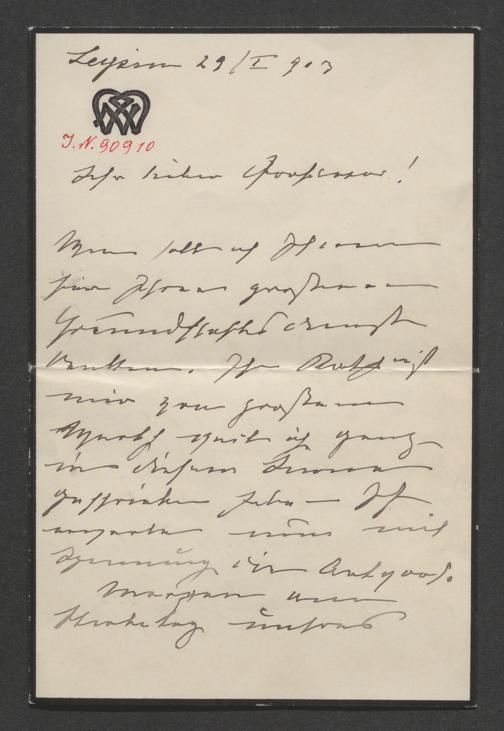 Leysin 29/I 903
J.N. 90910
Sehr lieber Professor!
Wie soll ich Ihnen
für Ihren großen
Freundschaftsdienst
danken. Ihr Rath ist
mir von großem
Werth weil ich ganz
in diesem Sinne
geschrieben habe – Ich
erwarte nun mit
Spannung die Antwort.
Morgen am
Sterbetag unseres